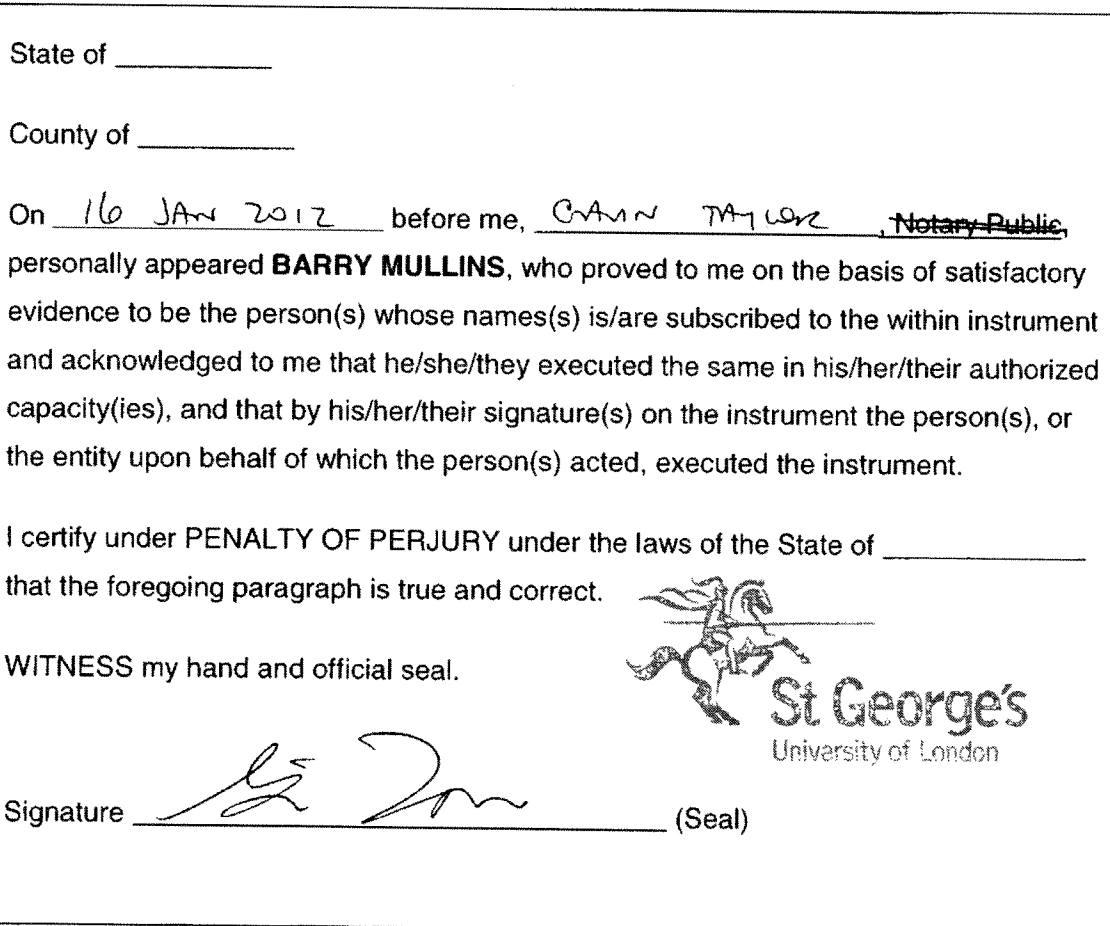 State of
County of
On 16 JAN 2012 before me, GAVIN TAYLOR, Notary Public,
personally appeared BARRY MULLINS, who proved to me on the basis of satisfactory
evidence to be the person(s) whose names(s) is/are subscribed to the within instrument
and acknowledged to me that he/she/they executed the same in his/her/their authorized
capacity(ies), and that by his/her/their signature(s) on the instrument the person(s), or
the entity upon behalf of which the person(s) acted, executed the instrument.
I certify under PENALTY OF PERJURY under the laws of the State of
that the foregoing paragraph is true and correct.
WITNESS my hand and official seal.
St George's
University of London
Signature (Seal)